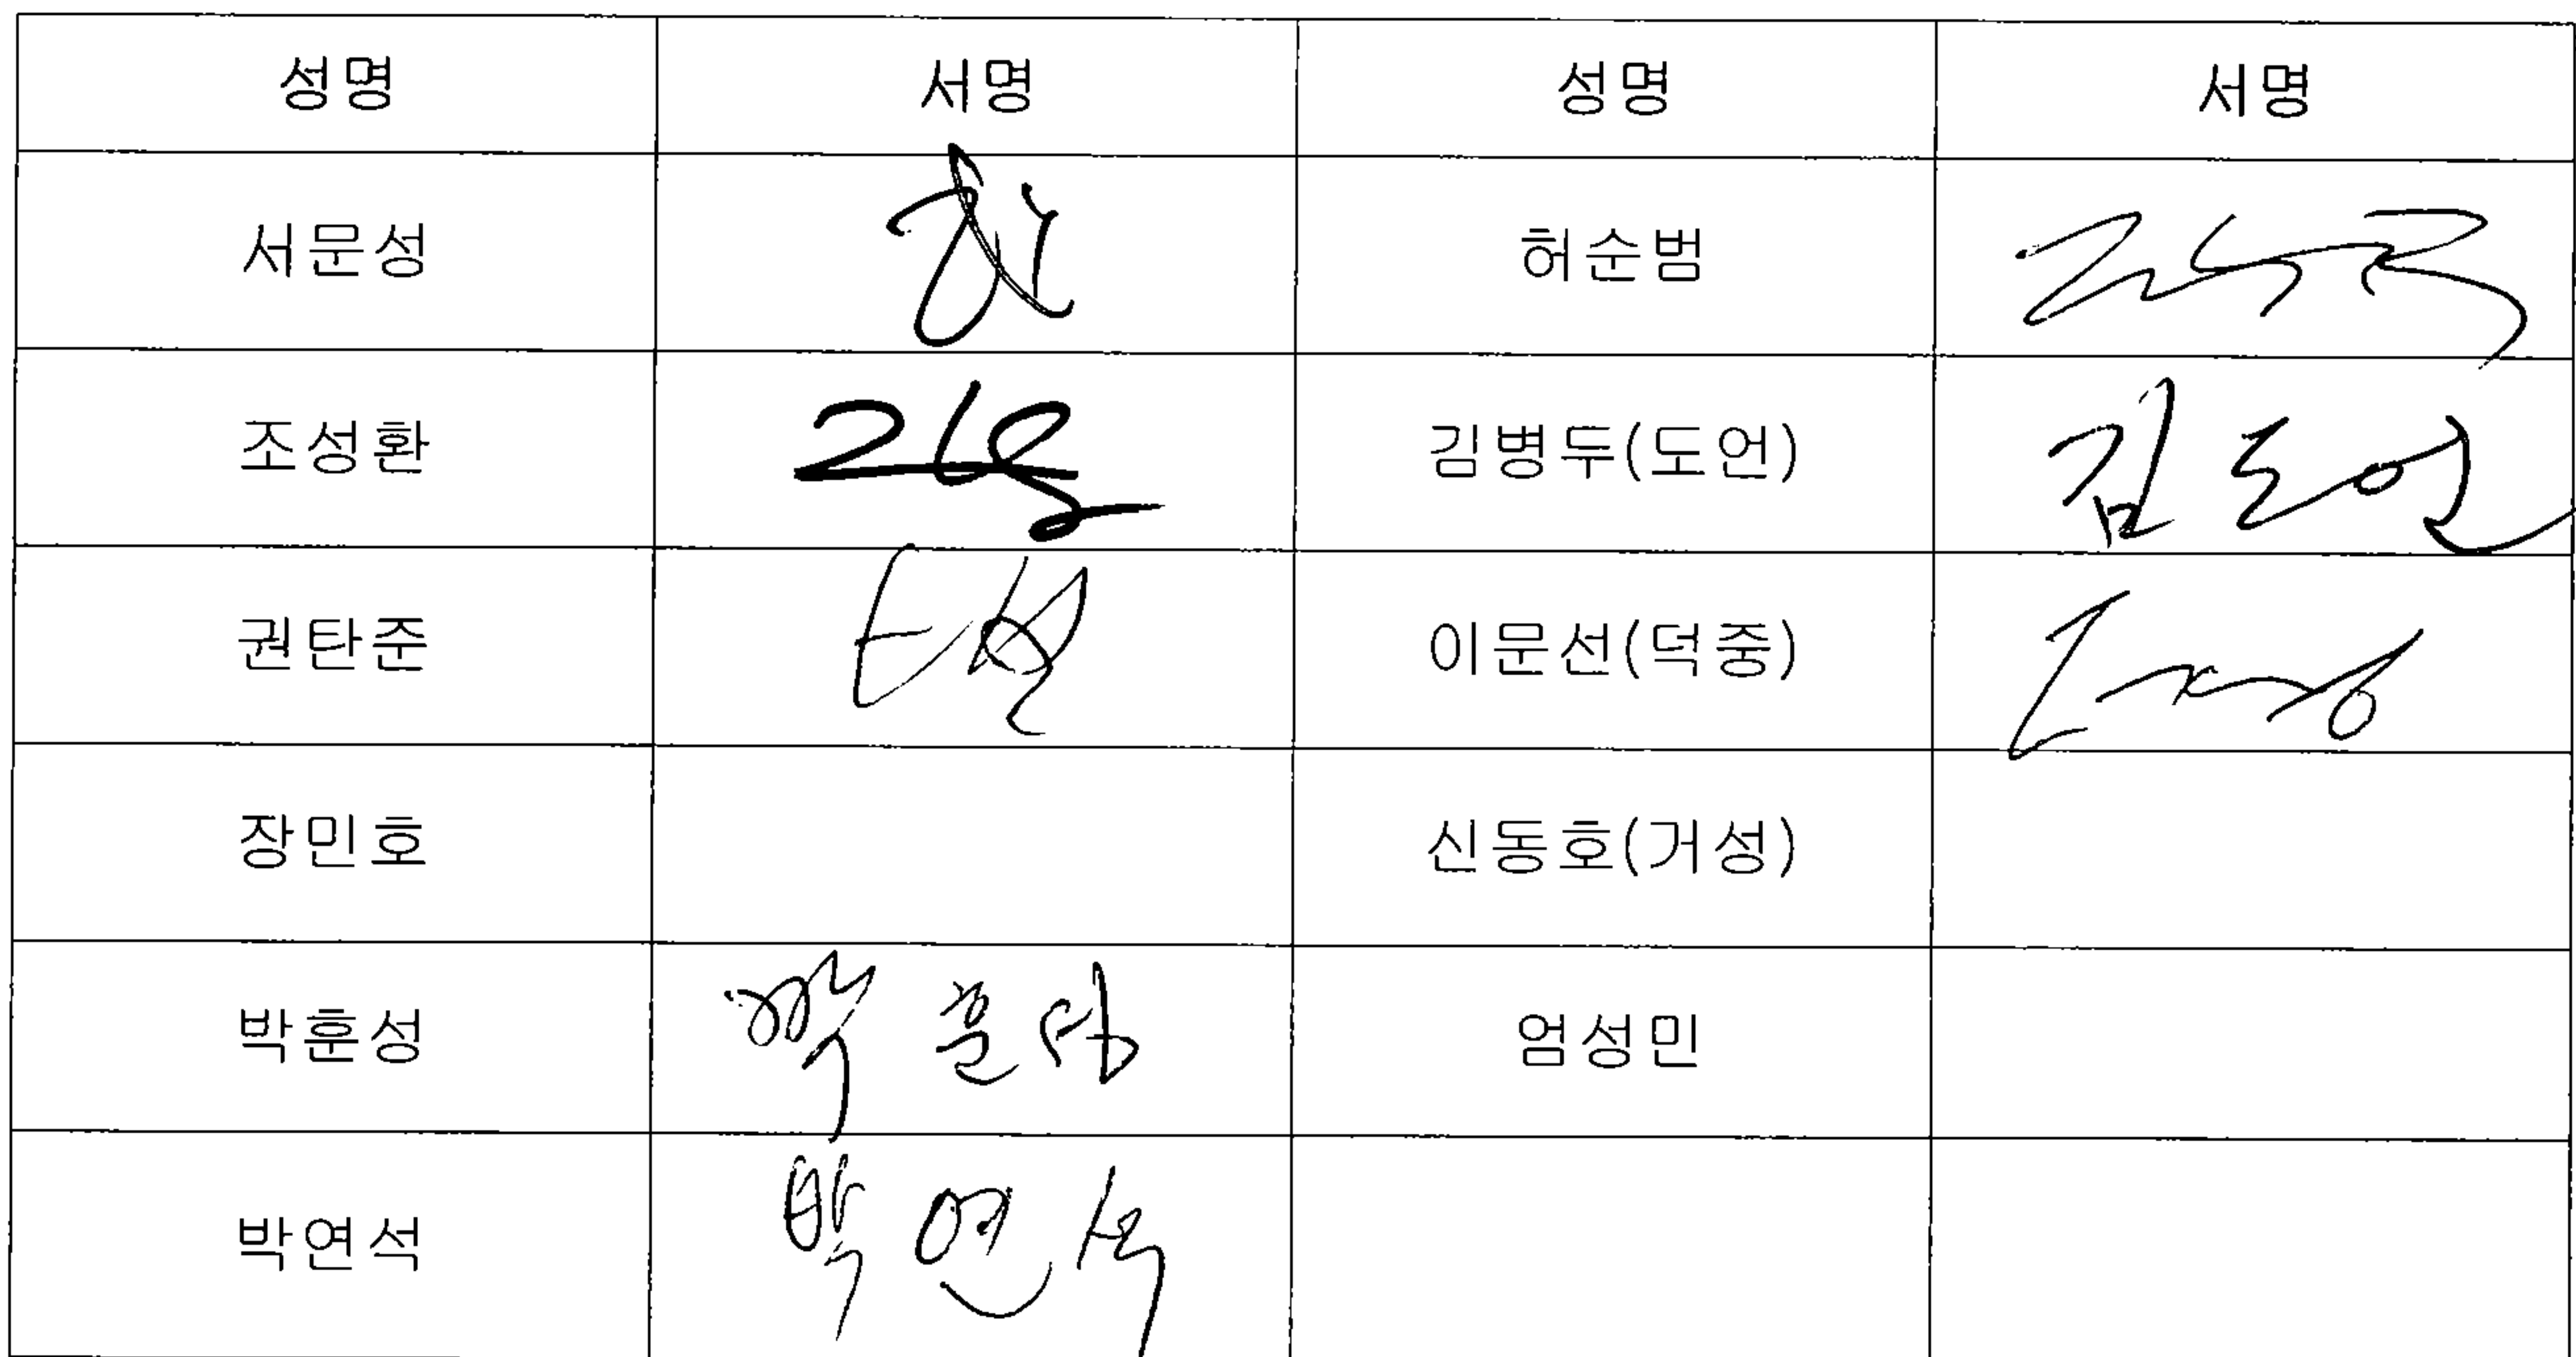 성명 서명 성명 서명
서문성 허순범
조성환 김병두(도언) 김도언
권탄준 이문선(덕중)
장민호 신동호(거성)
박훈성 박훈성 엄성민
박연석 박연석